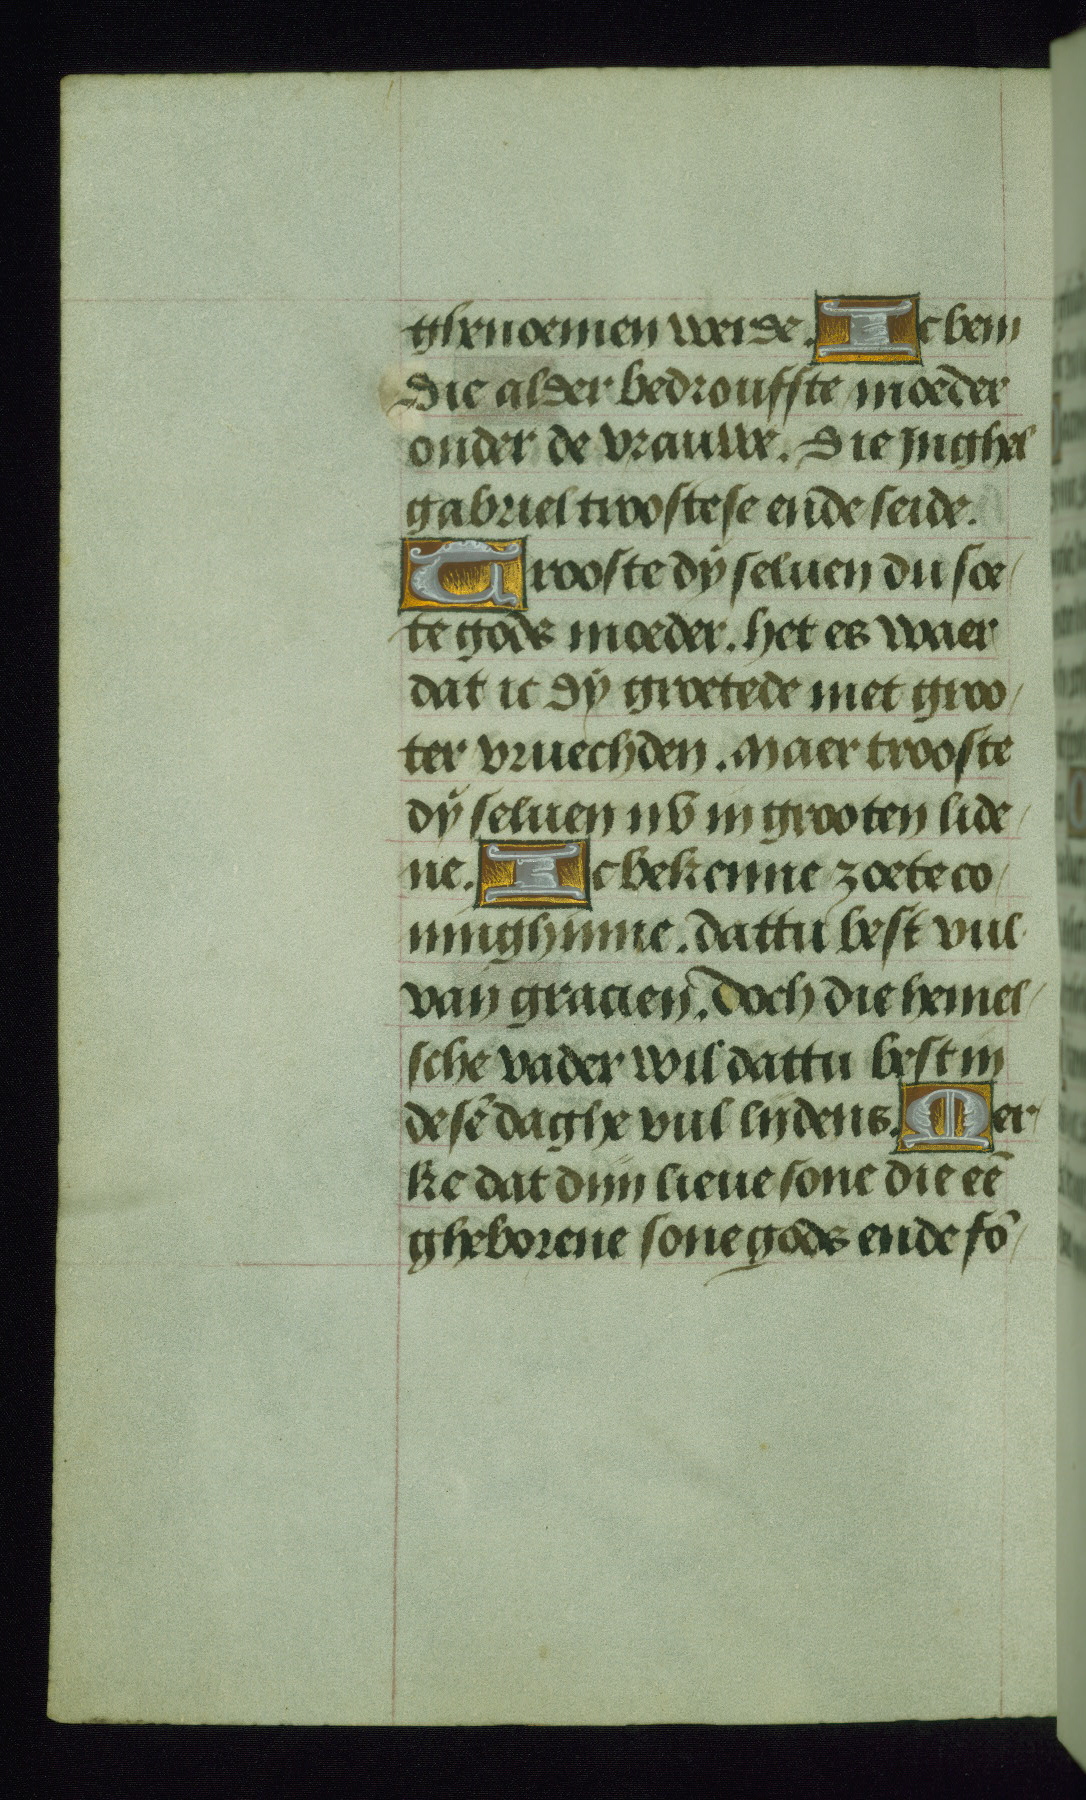 ghenoemen werde. Ic bem
die alder bedrouffste moeder
onder de vrauwe. Die Inghel
gabriel trostese ende seide.
Trooste dÿ seluen du soe/
te gods moeder. het es waer
dat ic dÿ groetede met groo/
ter vruechden. Maer trooste
dÿ seluen nv in grooten lide/
ne. Ic bekenne zoete co/
ninghinne. dattu best vul
van gracien. Doch die hemel/
sche vader wil dattu best in
desē daghe vul lijdens. Mer
ke dat dijn lieue sone die eē
gheborene sone gods ende sō/